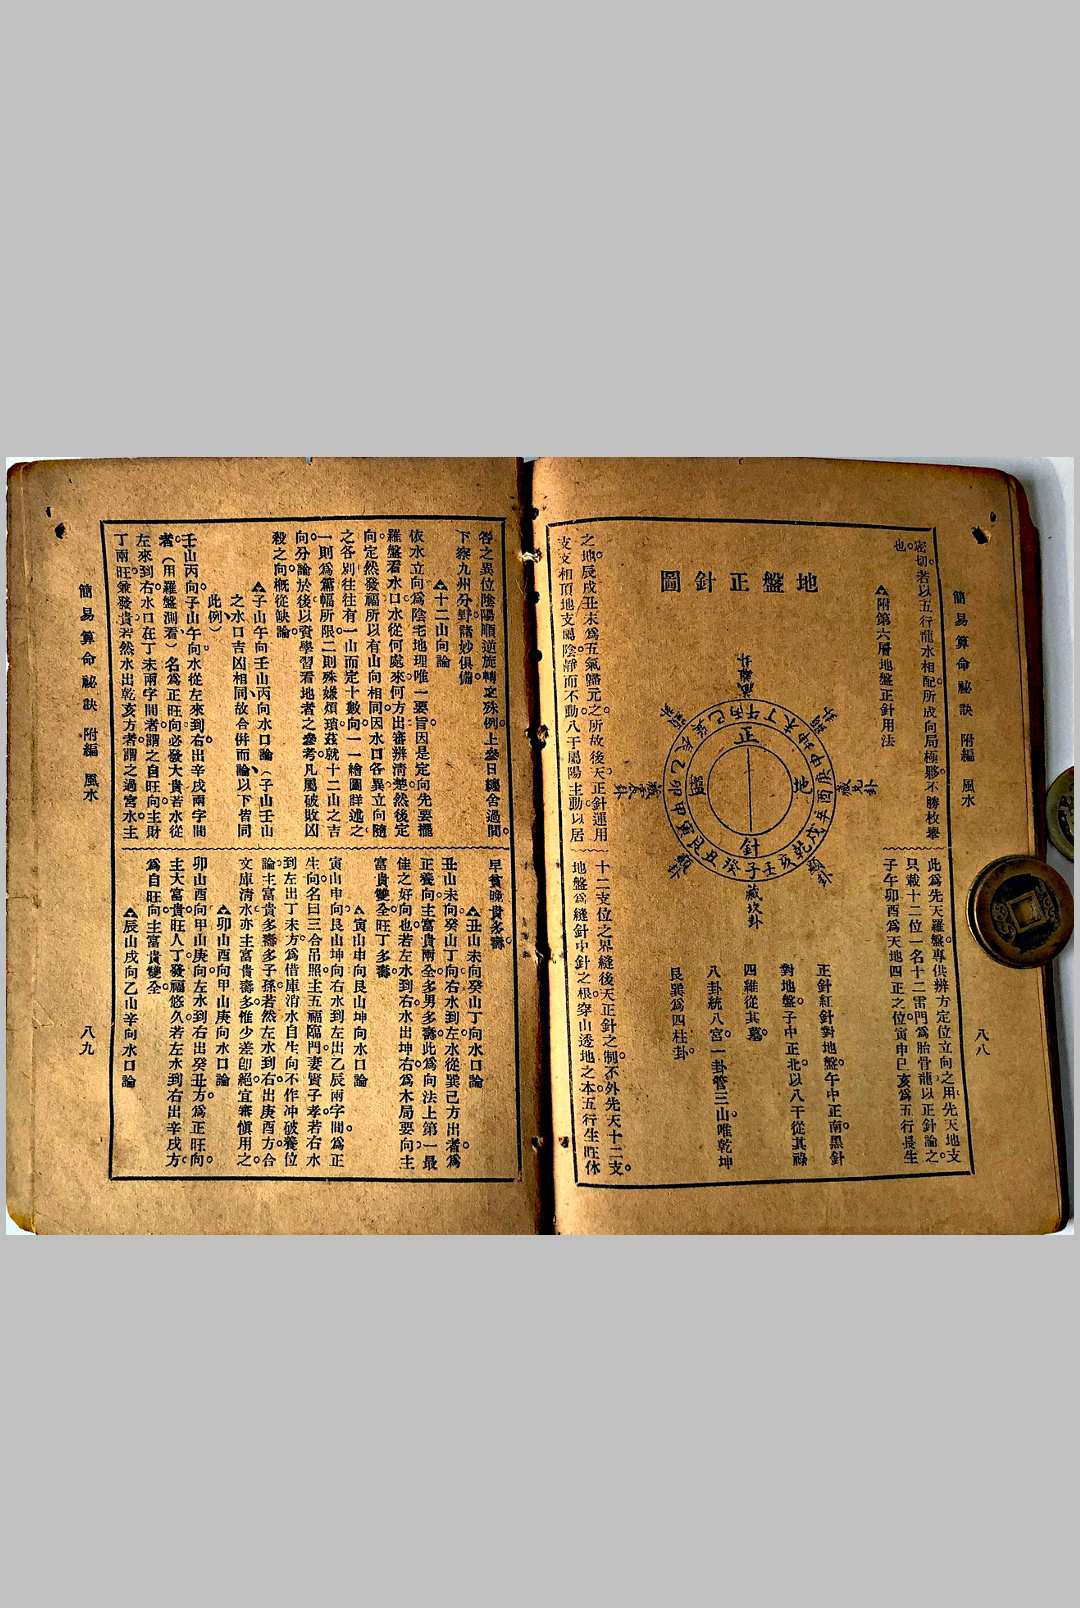 簡易算命祕訣 附編 風水
八八
密切。若以五行龍水相配。所成向局極夥。不勝枚擧
也。
▲附第六層地盤正針用法
此爲先天羅盤。專供辨方定位立向之用。先天地支
只載十二位一名十二雷門。爲胎骨龍。以正針論之。
子午卯酉。爲天地四正之位。寅申巳亥。爲五行長生
地盤正針圖
地盤正針
壬子癸丑艮寅甲卯乙辰巽巳丙午丁未坤申庚酉辛戌乾亥
藏坎卦
藏離卦
藏兌卦
藏震卦
正針紅針對地盤。午中正南。黑針
對地盤。子中正北。以八干從其祿
四維從其墓。
八卦統八宮。一卦管三山。唯乾坤
艮巽爲四柱卦。
之地。辰戌丑未。爲五氣歸元之所。故後天正針運用
支支相頂。地支屬陰。靜而不動。八干屬陽。主動。以居
十二支位之界縫。後天正針之制。不外先天十二支。
地盤爲縫針中針之根。穿山透地之本。五行生旺休
咎之異位。陰陽順逆旋轉之殊例。上參日纏舍過間。
下察九州分野。諸妙俱備。
▲十二山向論
依水立向。爲陰宅地理唯一要旨。因是定向先要擺
羅盤看水口。水從何處來何方出。審辨清楚。然後定
向。定然發福。所以有山向相同。因水口各異。立向隨
之各別。往往有一山而定十數向。一一繪圖詳述之
一則爲篇幅所限。二則殊嫌煩瑣。茲就十二山之吉
向。分論於後。以資學習看地者之參考。凡屬破敗凶
殺之向。概從缺論。
▲子山午向壬山丙向水口論(子山壬山
之水口吉凶相同故合併而論以下皆同
此例)
壬山丙向。子山午向。水從左來到右。出辛戌兩字間
者。(用羅盤測看)名爲正旺向。必發大貴。若水從
左來到右。水口在丁未兩字間者。謂之自旺向。主財
丁兩旺。兼發貴。若然水出乾亥方者。謂之過宮水。主
早貧晚貴多壽。
▲丑山未向癸山丁向水口論
丑山未向。癸山丁向。右水到左。水從巽巳方出者。爲
正養向。主富貴兩全。多男多壽。此爲向法上第一最
佳之好向也。若左水到右。水出坤。右爲木局要向。主
富貴雙全。旺丁多壽
▲寅山申向艮山坤向水口論
寅山申向。艮山坤向。右水到左。出乙辰兩字間。爲正
生向。名曰三合吊照。主五福臨門。妻賢子孝。若右水
到左出丁未方。爲借庫消水。自生向。不作冲破養位
論。主富貴多壽多子孫。若然左水到右。出庚酉方。合
文庫清水。亦主富貴壽多。惟少差卽絕。宜審愼用之。
▲卯山酉向甲山庚向水口論
卯山酉向。甲山庚向。左水到右。出癸丑方。爲正旺向。
主大富貴。旺人丁。發福悠久。若左水到右。出辛戌方。
爲自旺向。主富貴雙全。
▲辰山戌向乙山辛向水口論
簡易算命祕訣 附編 風水
八九